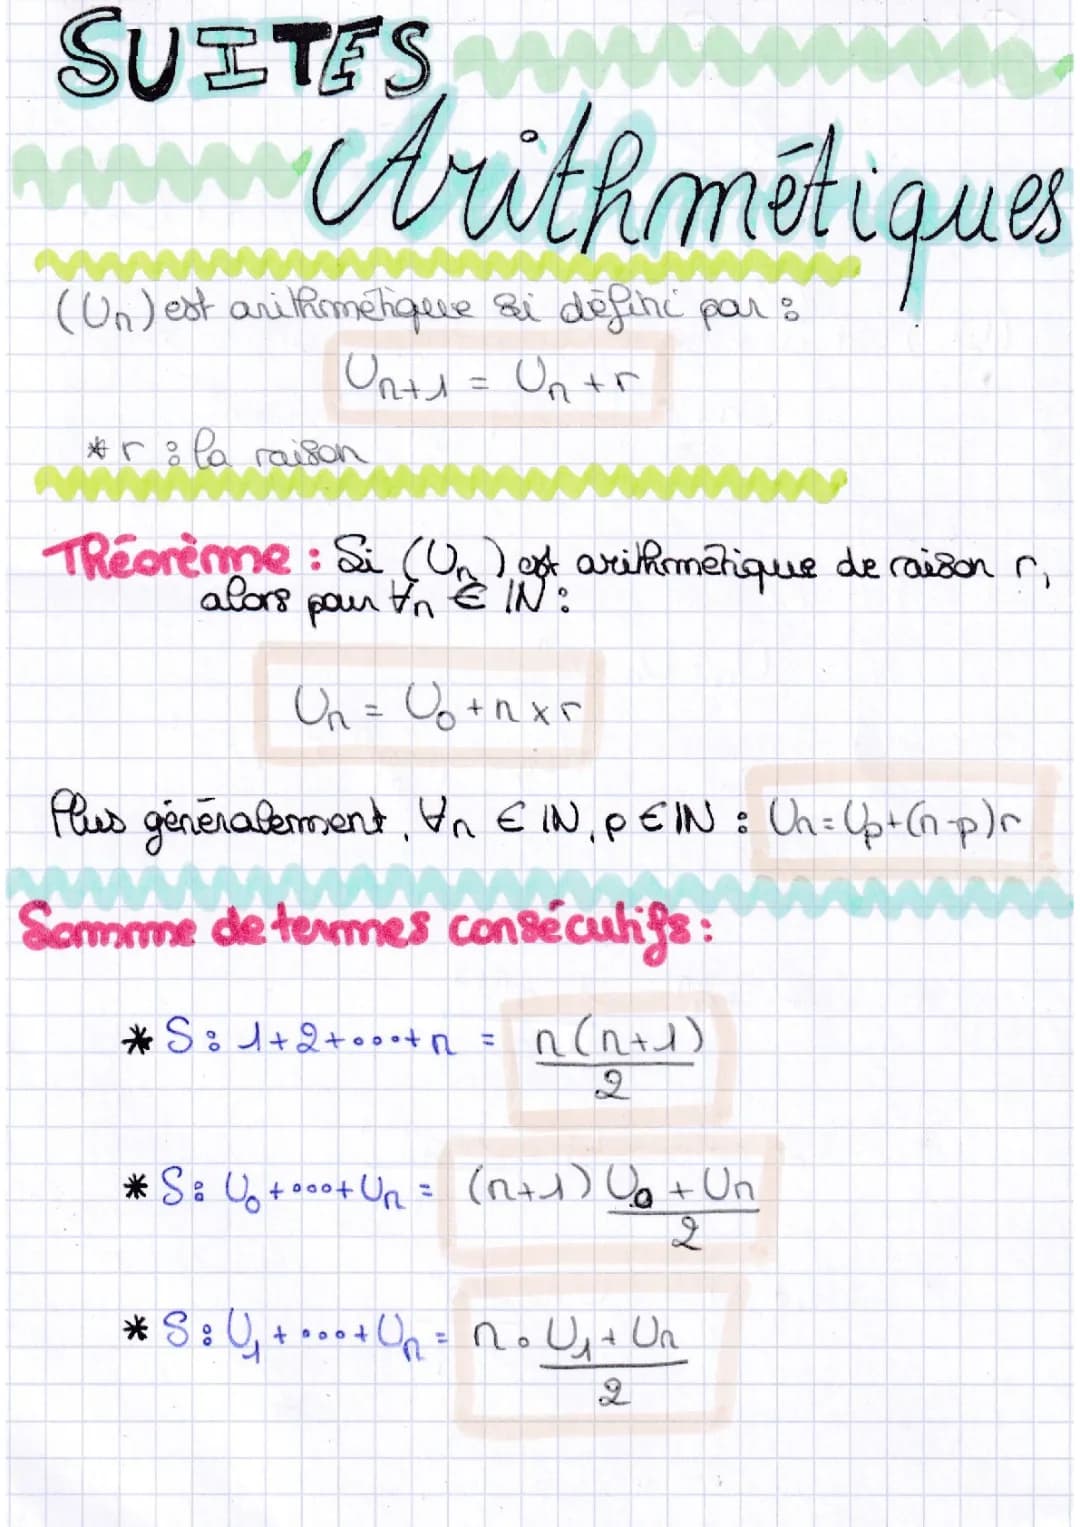 SUITES
Arithmétiques
(Un) est arithmétique si défini par :
Un+1 = Un + r
* r : la raison
Théorème : Si (Un) est arithmétique de raison r,
alors pour ∀n ∈ IN :
Un = U0 + n x r
Plus généralement, ∀n ∈ IN, p ∈ IN : Un = Up + (n-p)r
Somme de termes consécutifs :
* S : 1+2+...+n = n(n+1)
2
* S : U0 +...+ Un = (n+1) U0 + Un
2
* S : U1 +...+ Un = n . U1 + Un
2